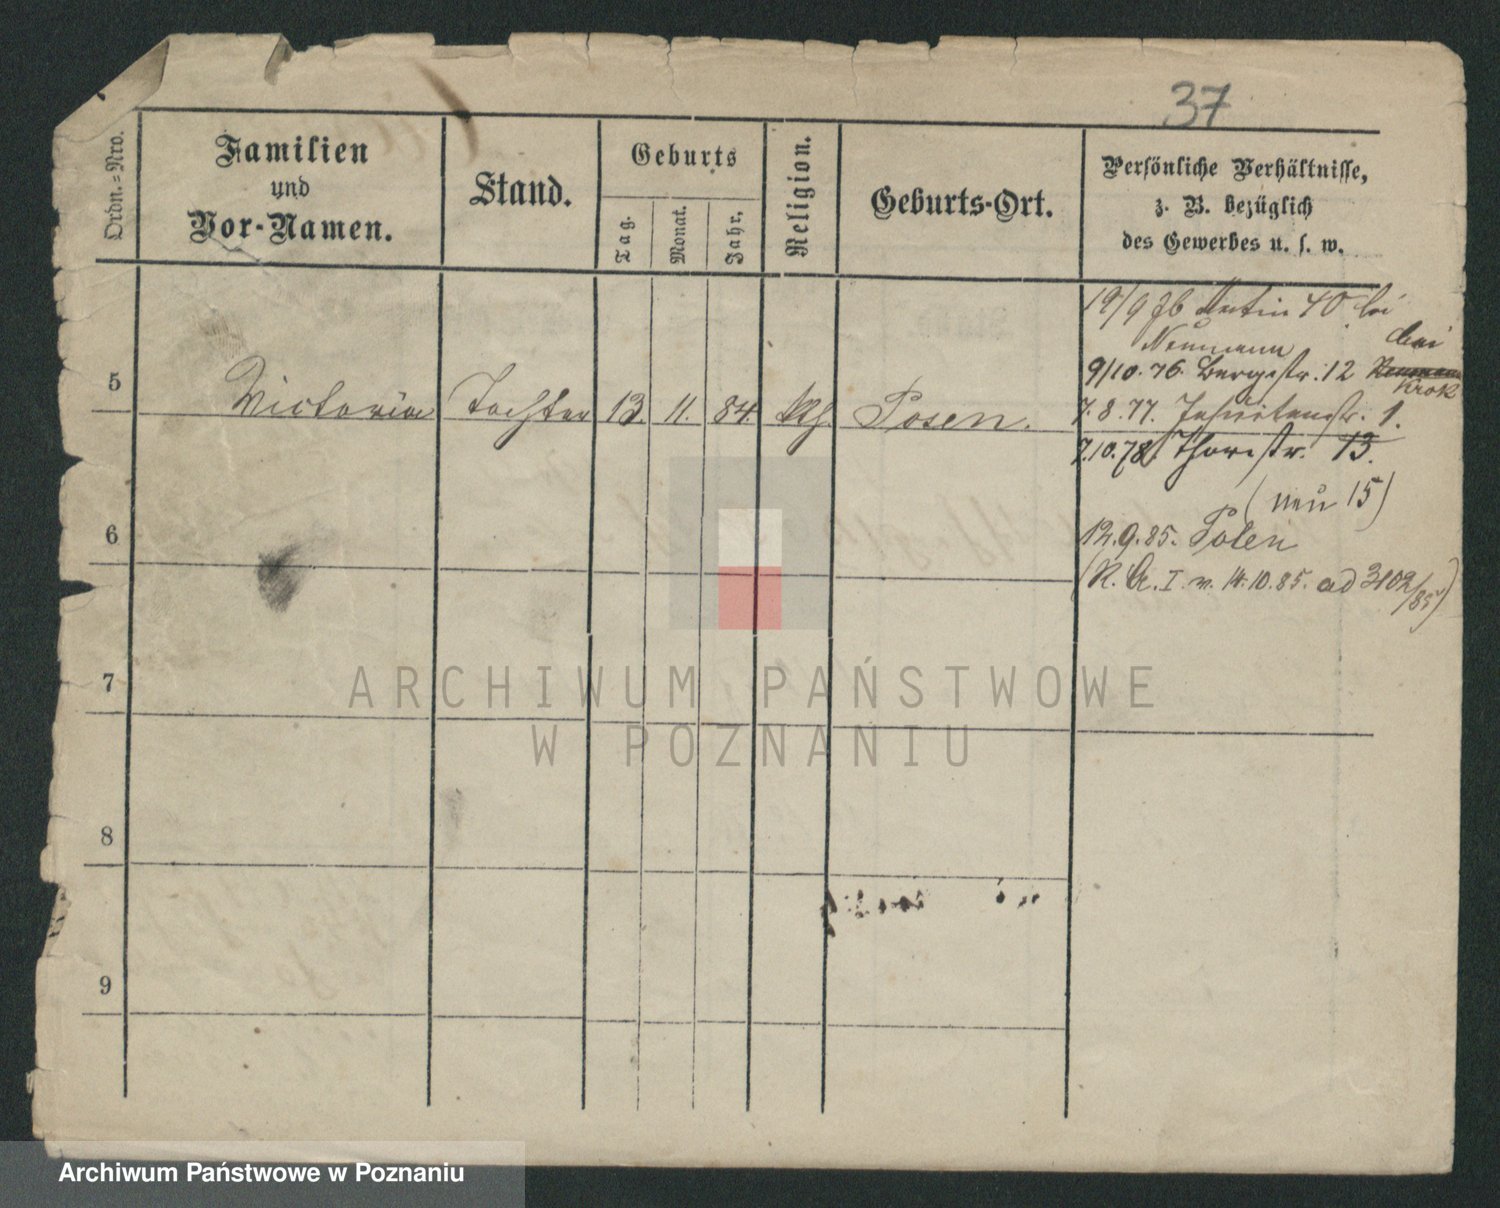 37
Ordn.-Nro.
Familien
und
Vor-Namen.
Stand.
Geburts
Tag.
Monat.
Jahr.
Religion.
Geburts-Ort.
Persönliche Verhältnisse,
z. B. bezüglich
des Gewerbes u. s. w.
19/9 76 Martin 40 bei
Neumann
bei
9/10.76. Bergstr. 12 Neumann
Krok
5 Victoria Tochter 13. 11. 84. kth. Posen.
7.8.77. Jesuitenstr. 1.
7.10.78. Thorstr. 13.
(neu 15)
6
12.9.85. Polen
(R. A. I. v. 14.10.85. ad 3102/85)
7
8
9
ARCHIWUM PAŃSTWOWE
W POZNANIU
Archiwum Państwowe w Poznaniu